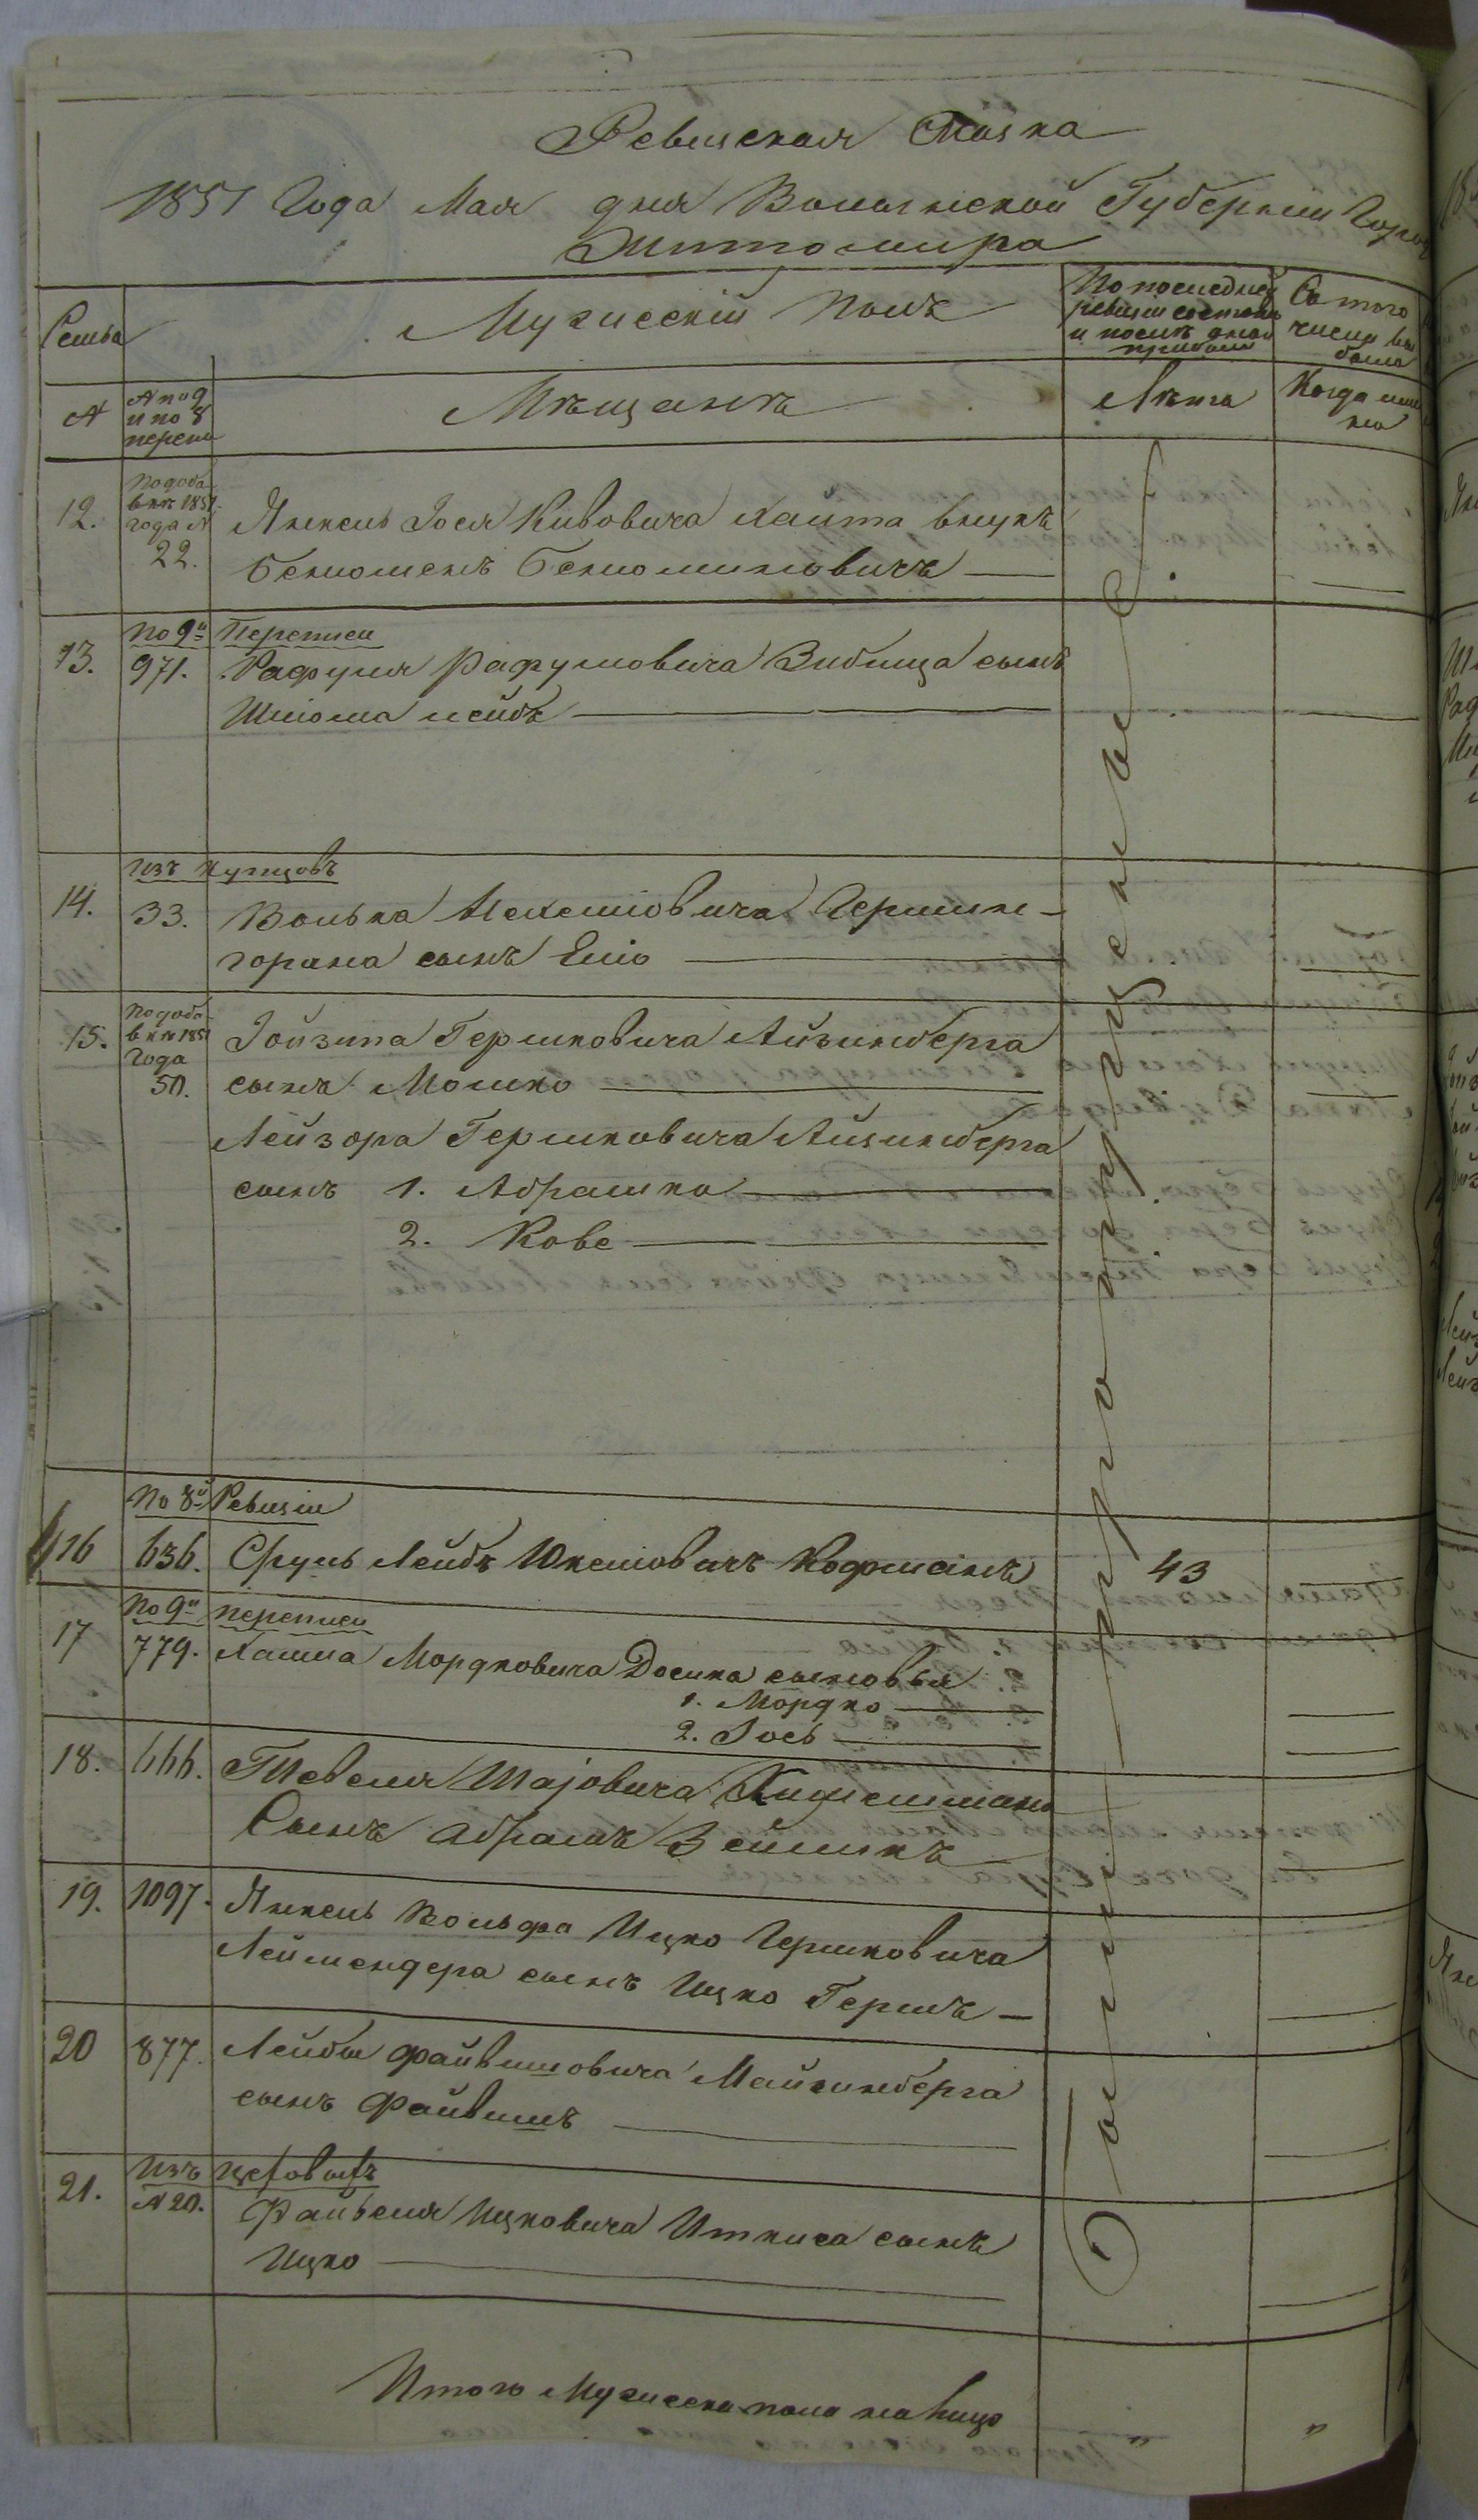 Ревизская Сказка
1851 Года Мая дня Волынской Губерніи Города
Житомира
Семьи
Мужескій Полъ
По последней
ревизіи состояло
и послѣ оной
прибыло
Съ того
числа вы
было
№
№ по 9
и по 8
перепи
Мѣщанъ
Лѣта
Когда имен
но
12.
По доба
вкѣ 1851
года №
22.
Янкель Іося Кивовича Хаита внукъ
Бениоменъ Бениоминовичъ
13.
По 9й Переписи
971. Рафуля Рафуловича Зибница сынъ
Шліома Лейбъ
14.
Изъ Купцовъ
33. Волька Мехелiовича Герштн-
горана сынъ Еліо
15.
По доба
вкѣ 1851
Года
50.
Іойзипа Гершковича Айзинберга
сынъ Мошко
Лейзора Гершковича Айзинберга
сынъ 1. Абрашко
2. Кове
По 8й Ревизіи
16 636. Сруль Лейбъ Юкелiовичъ Кофманъ 43
По 9й переписи
17 779. Хаима Мордковича Досика сыновья
1. Мордко
2. Іось
18. 666. Тевеля Шаіовича
Сынъ Абрамъ Зейликъ
19. 1097. Янкель Вольфа Ицко Гершковича
Леймендера сынъ Ицко Гершъ
20 877. Лейбы Файвишовича Майзинберга
сынъ Файвишъ
21.
Изъ цеховыхъ
№ 20. Файвеля Ицковича Иткиса сынъ
Ицко
Итого Мужеска пола на лицо